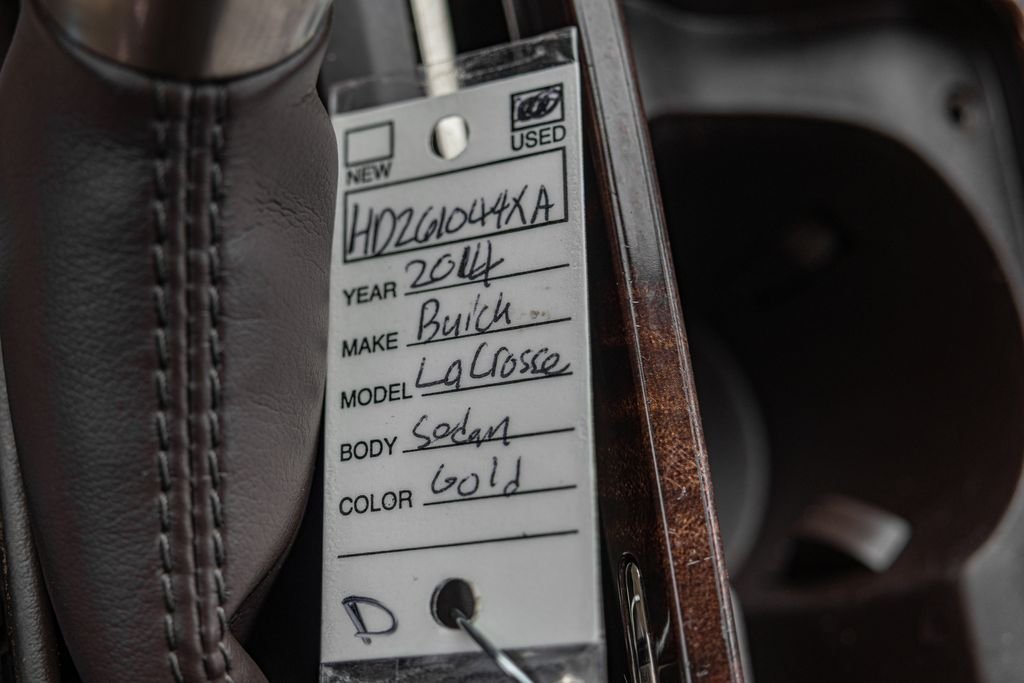 NEW USED
HD261044XA
YEAR 2014
MAKE Buick
MODEL LaCrosse
BODY Sedan
COLOR Gold
D